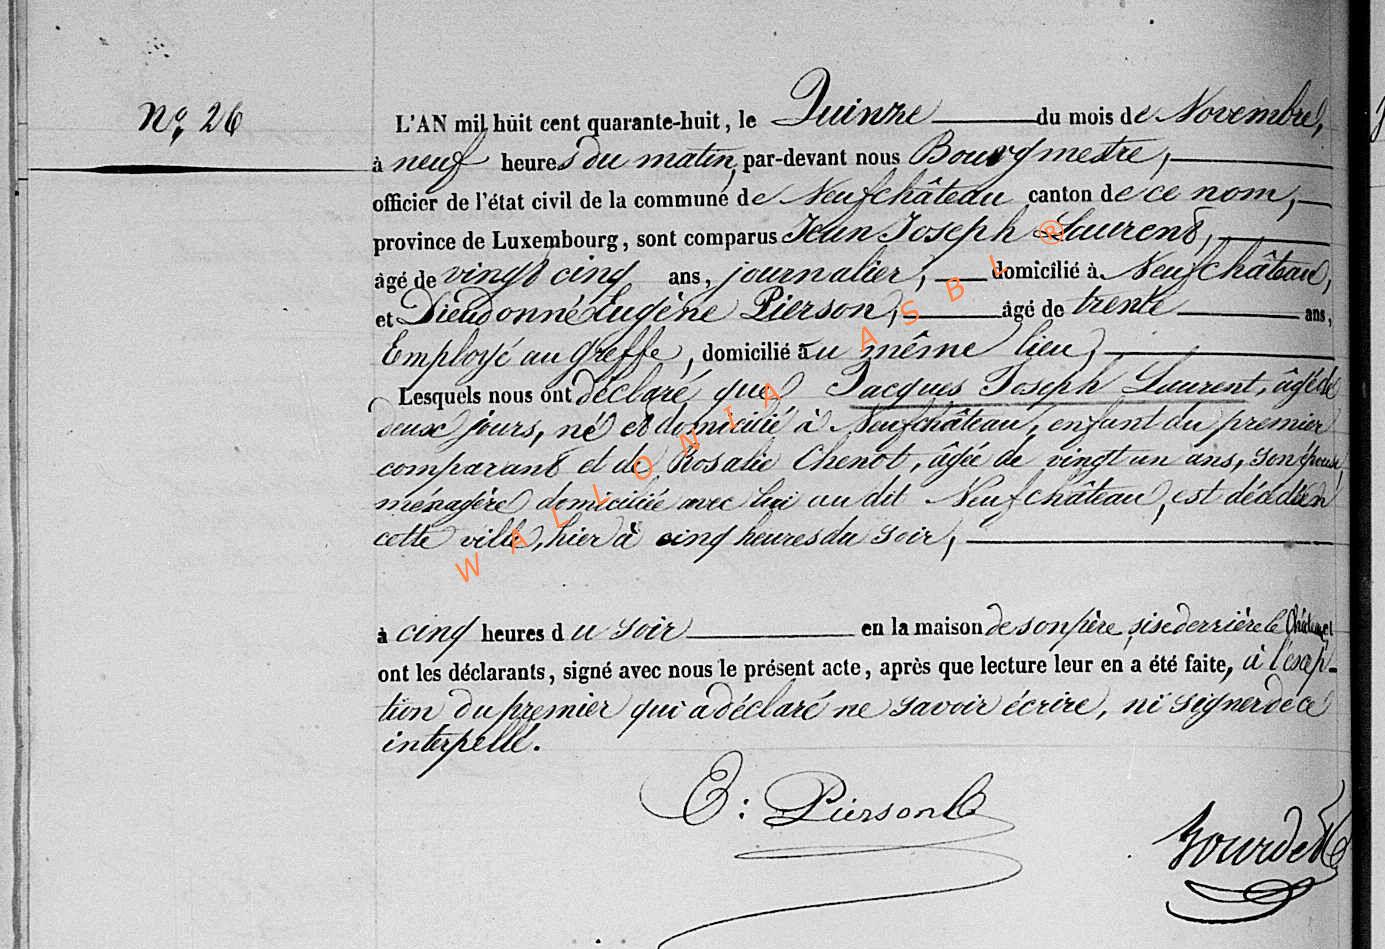 Nº 26
L'AN mil huit cent quarante-huit, le Quinze du mois de Novembre,
à neuf heures du matin, par-devant nous Bourgmestre,
officier de l'état civil de la commune de Neufchâteau canton de ce nom,
province de Luxembourg, sont comparus Jean Joseph Laurent,
âgé de vingt cinq ans, journalier, domicilié à Neufchâteau,
et Dieudonné Eugène Pierson, âgé de trente ans,
Employé au greffe, domicilié au même lieu,
Lesquels nous ont déclaré que Jacques Joseph Laurent, âgé de
deux jours, né et domicilié à Neufchâteau, enfant du premier
comparant et de Rosalie Chenot, âgée de vingt un ans, son épouse,
ménagère domiciliée avec lui au dit Neufchâteau, est décédé en
cette ville, hier à cinq heures du soir,
à cinq heures du soir en la maison de son père, sise derrière le Château, et
ont les déclarants, signé avec nous le présent acte, après que lecture leur en a été faite, à l'excep-
tion du premier qui a déclaré ne savoir écrire, ni signer de ce
interpellé.
E: Pierson
WALLONIA ASBL ®